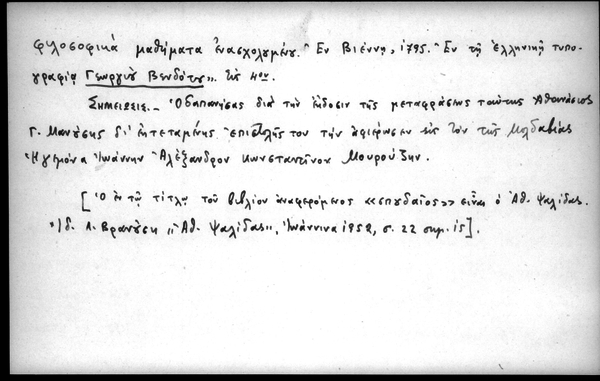 φιλοσοφικὰ μαθήματα ἐνασχολουμένου. Ἐν Βιέννῃ, 1795. Ἐν τῇ ἑλληνικῇ τυπο-
γραφίᾳ Γεωργίου Βενδότου". Εἰς 4ον.
Σημείωσις.- Ὁ δαπανήσας διὰ τὴν ἔκδοσιν τῆς μεταφράσεως ταύτης Ἀθανάσιος
Γ. Μανούσης δι' ἐκτεταμένης ἐπιστολῆς του τὴν ἀφιέρωσεν εἰς τὸν τῆς Μολδαβίας
Ἡγεμόνα Ἰωάννην Ἀλέξανδρον Κωνσταντίνου Μουρούζην.
[Ὁ ἐν τῷ τίτλῳ τοῦ βιβλίου ἀναφερόμενος «σπουδαῖος» εἶναι ὁ Ἀθ. Ψαλίδας.
Ἰδ. Λ. Βρανούση "Ἀθ. Ψαλίδας", Ἰωάννινα 1952, σ. 22 σημ. 15].